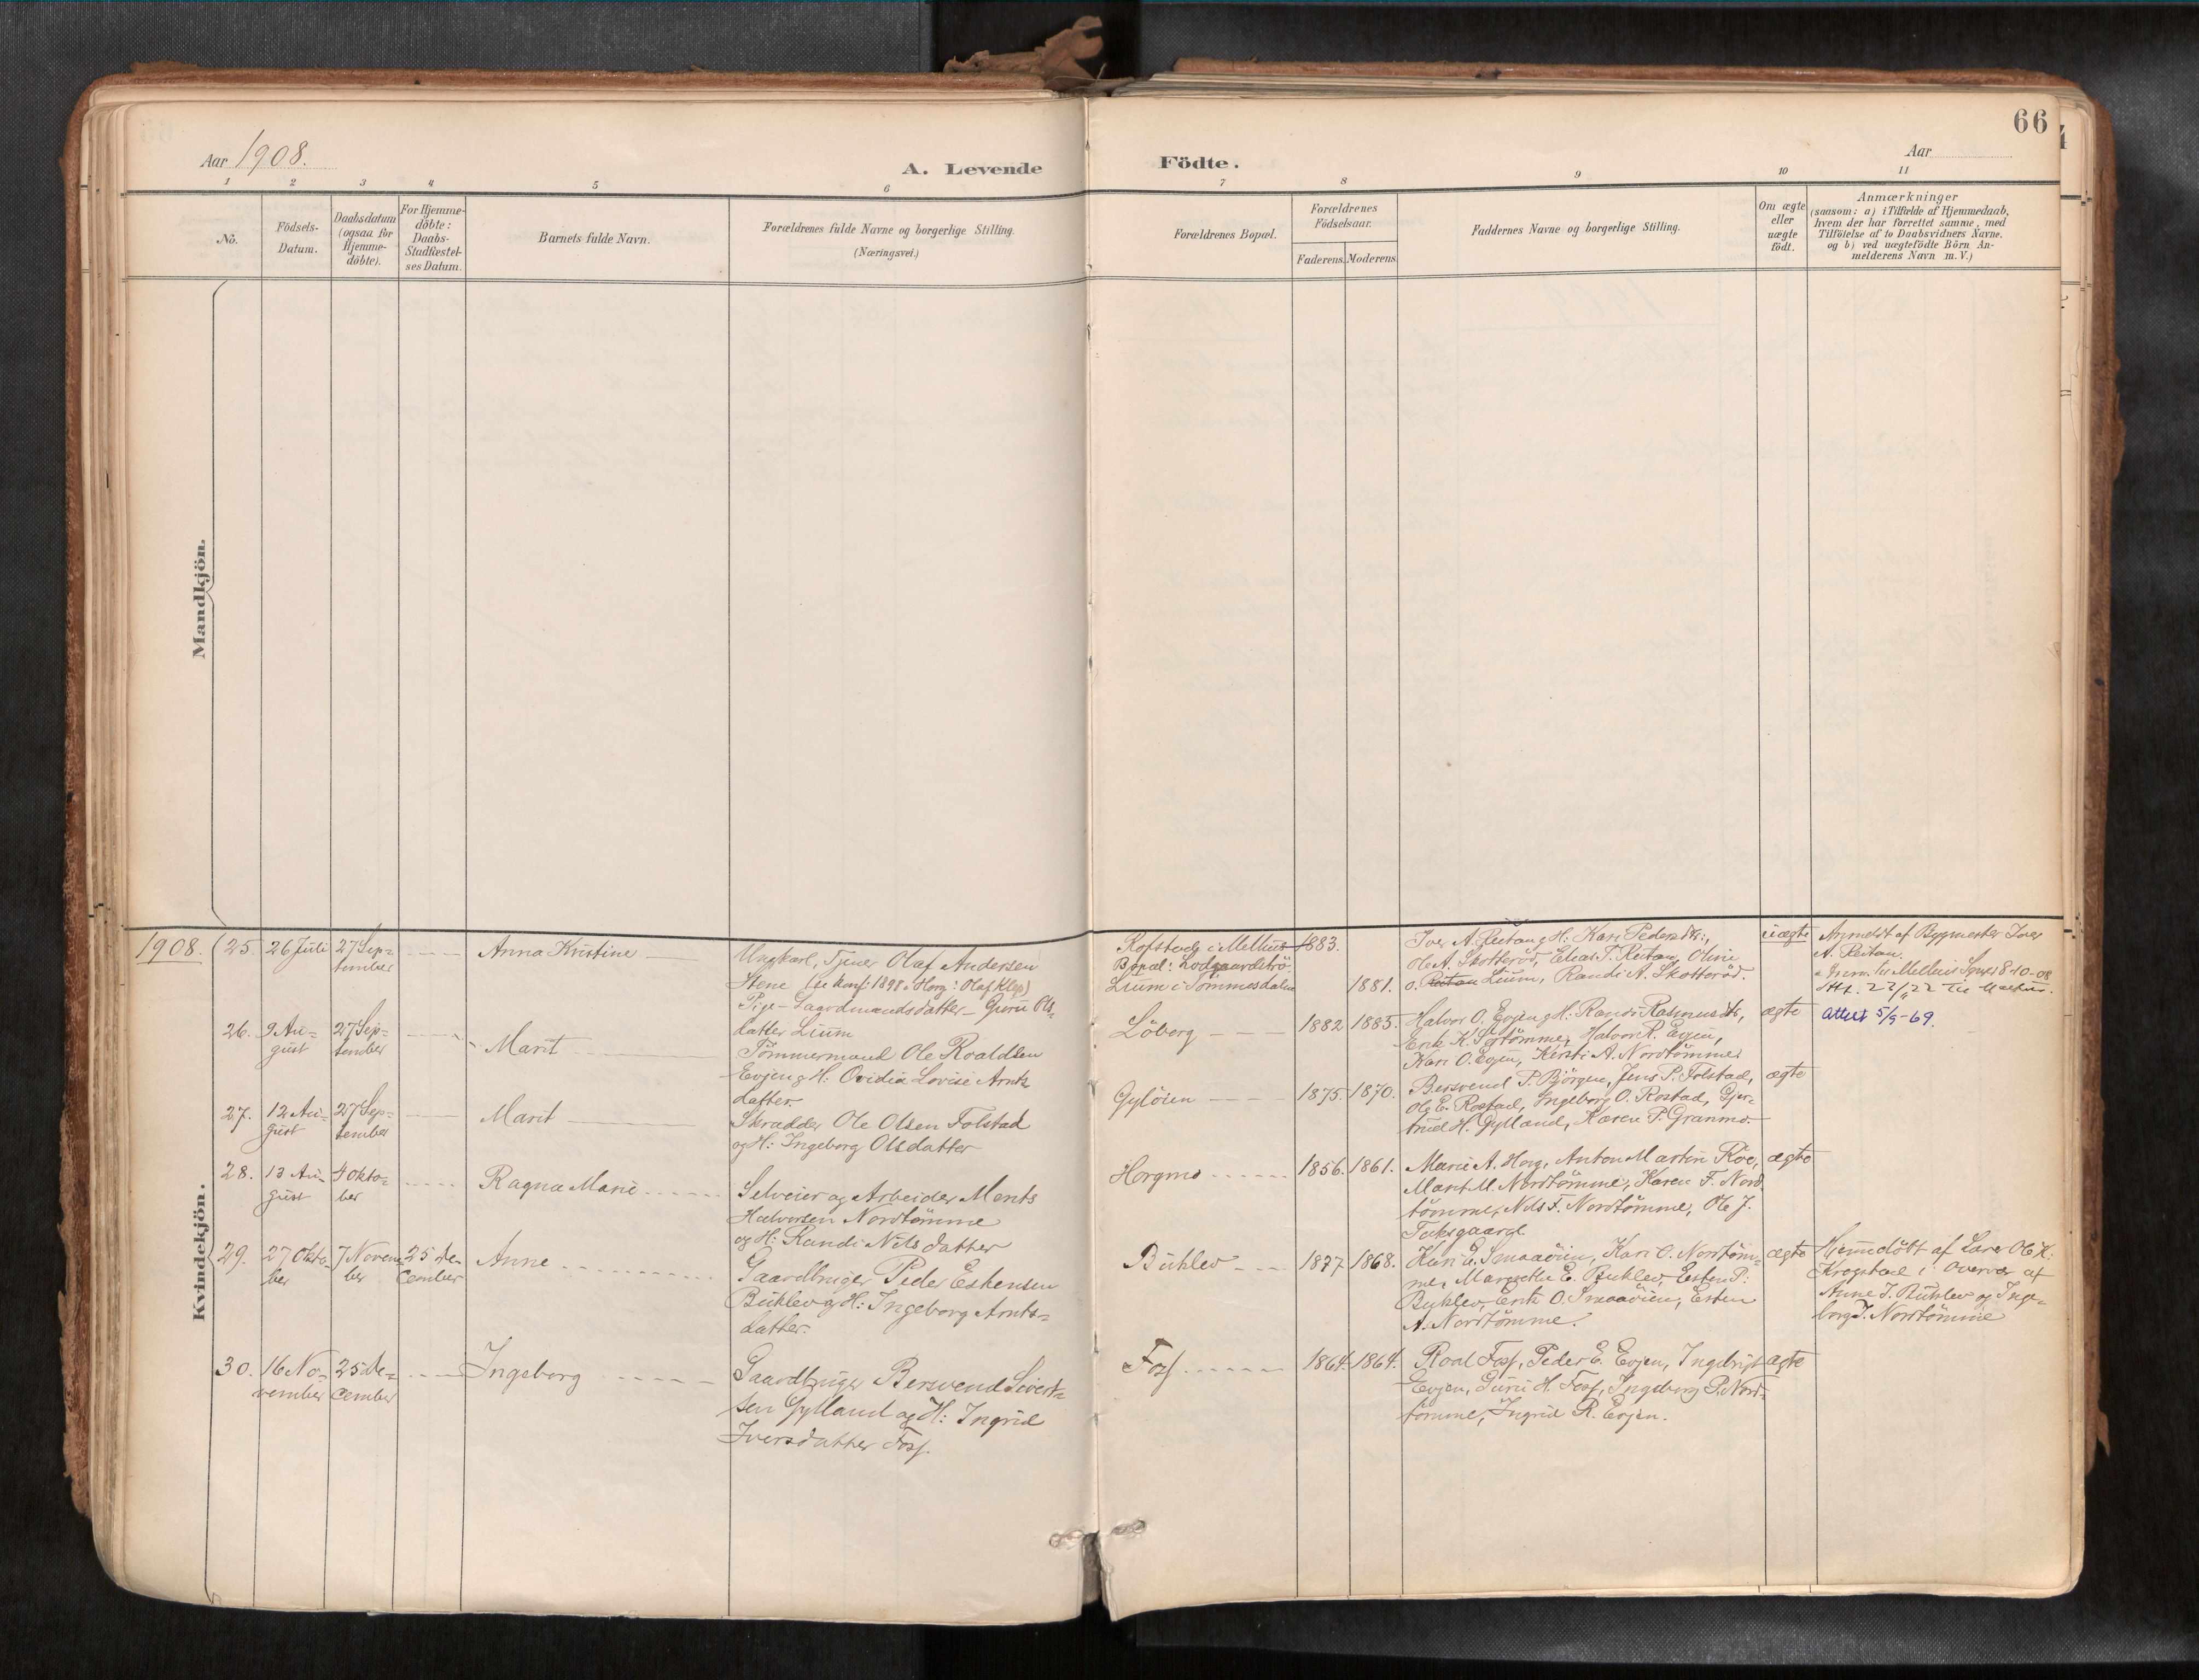 66
Aar 1908.
A. Levende
Födte.
Aar
1 2 3 4 5 6 7 8 9 10 11
No.
Födsels-
Datum.
Daabsdatum
(ogsaa for
Hjemme-
döbte).
For Hjemme-
döbte:
Daabs-
Stadfæstel-
ses Datum.
Barnets fulde Navn.
Forældrenes fulde Navne og borgerlige Stilling.
(Næringsvei.)
Forældrenes Bopæl.
Forældrenes
Födselsaar.
Faderens. Moderens.
Faddernes Navne og borgerlige Stilling.
Om ægte
eller
uægte
födt.
Anmærkninger
(saasom: a) i Tilfælde af Hjemmedaab,
hvem der har forrettet samme, med
Tilföielse af to Daabsvidners Navne,
og b) ved uægtefödte Börn An-
melderens Navn m. V.)
Mandkjön.
Kvindekjön.
1908.
25. 26 Juli
27 Sep-
tember
Anna Kristine
Ungkarl, Tjener Olaf Andersen
Stene (se konf: 1898 i Horg: Olaf Klep)
Pige - Gaardmandsdatter - Guru Ols-
datter Lium
Kofstad i Melhus
Bopæl:
Lium i
1883.
1881.
Iver A. Reitan g H: Kari Pedersdtr:,
Ole A. Skotteröd, Elias T. Reitan, Oline
O. Reitan Lium, Randi A. Skotteröd.
uægte
Anmeldt af Bygmester Iver
A. Reitan.
Melhus 8-10-08
Att. 22/11 22 til
26. 9 Au-
gust
27 Sep-
tember
Marit
Tömmermand Ole Roaldsen
Evjen g H: Ovidia Lovise Arnts
datter.
Löberg
1882 1885.
Halvor O. Evjen g H: Randi Rasmusdtr,
Erik K. Nordtömme, Halvor R. Evjen,
Kari O. Evjen, Kirsti A. Nordtömme.
ægte
attest 5/9-69.
27. 12 Au-
gust
27 Sep-
tember
Marit
Skrædder Ole Olsen Folstad
og H: Ingeborg Olsdatter
Gylöien
1875. 1870.
Bersvend P. Björgen, Jens P. Folstad,
Ole E. Rostad, Ingeborg O. Rostad, Gjer-
trud H. Gylland, Karen P. Granmo.
ægte
28. 13 Au-
gust
4 Okto-
ber
Ragna Marie
Selveier og Arbeider Ments
Halvorsen Nordtömme
og H: Randi Nils datter
Horgmo
1856. 1861.
Marie A. Horg, Anton Martin Röe,
Marit M. Nordtömme, Karen F. Nord
tömme, Nils F. Nordtömme, Ole J.
ægte
29. 27 Okto-
ber
7 Novem-
ber
25 De-
cember
Anne
Gaardbruger Peder Estensen
Buhlev g H: Ingeborg Arnts-
datter.
Buhlev
1877 1868.
Kari E. Smaaöien, Kari O. Nordtöm-
me, Margrethe E. Buhlev, Esten P.
Buhlev, Erik O. Smaaöien, Esten
A. Nordtömme.
ægte
Hjemdöbt af Lærer Ole K.
Krogstad i Overvær af
Anne J. Buhlev og Inge-
borg J. Nordtömme
30. 16 No-
vember
25 De-
cember
Ingeborg
Gaardbruger Bersvend Sivert-
sen Gylland og H: Ingrid
Iversdatter Foss.
Foss
1864. 1864.
Roal Foss, Peder E. Evjen, Ingebrigt
Evjen, Guru H. Foss, Ingeborg P. Nord-
tömme, Ingrid R. Evjen.
ægte